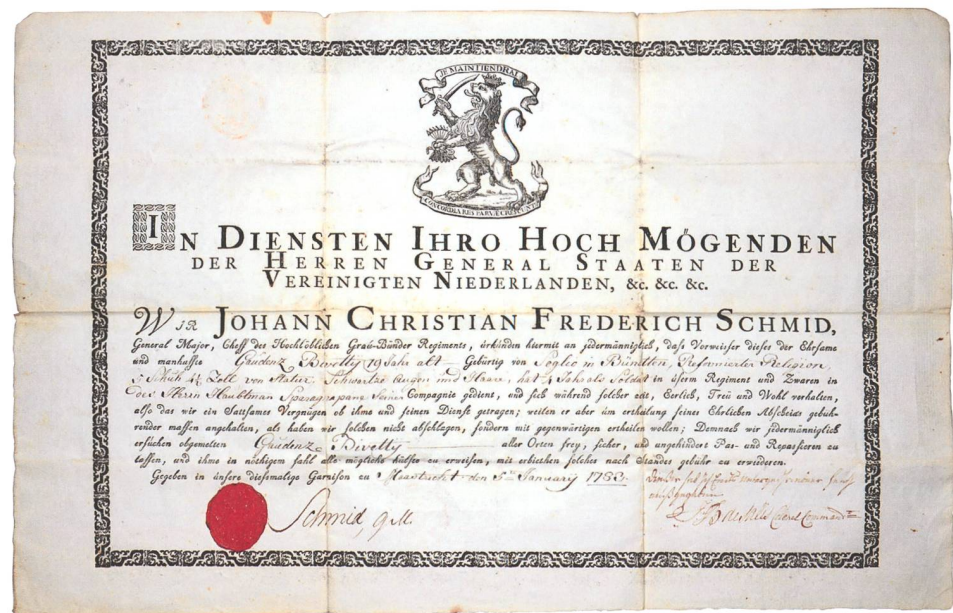 JE MAINTIENDRAI
CONCORDIA RES PARVÆ CRESCUNT
IN DIENSTEN IHRO HOCH MÖGENDEN
DER HERREN GENERAL STAATEN DER
VEREINIGTEN NIEDERLANDEN, &c. &c. &c.
WIR JOHANN CHRISTIAN FREDERICH SCHMID,
General Major, Cheff des Hochlöblichen Grau-Bünder Regiments, urkünden hiermit an jedermänniglich, dass Vorweiser dieses der Ehrsame
und manhaffte Gaudenz Bivetty 19 Jahr alt Gebürtig von Soglio in Bündten, Reformierter Religion,
5 Schuh Zoll von Statur, Schwartze Augen und Haare, hat Jahr als Soldat in userm Regiment und Zwaren in
des Herrn Haubtman Compagnie gedient, und sich während solcher zeit, Eerlich, Treü und Wohl verhalten,
also das wir ein Sattsames Vergnügen ob ihme und seinen Dienst getragen; weilen er aber üm ertheilung seines Ehrlichen Abscheids gebüh-
render massen angehalten, als haben wir solchen nicht abschlagen, sondern mit gegenwärtigen ertheilen wollen; Demnach wir jedermänniglich
ersüchen obgemelten Gaudenz Bivetty aller Orten frey, sicher, und ungehindert Pas- und Repassieren zu
lassen, und ihme in nöthigen fahl alle mögliche hülfse zu erweisen, mit erbiethen solches nach Standes gebühr zu erwiederen.
Gegeben in üsere diesmalige Garnison zu den 5ten January
Schmid, GM.